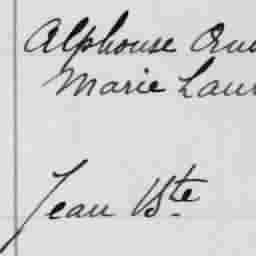 Alphonse
Marie Laur
Jean Bte